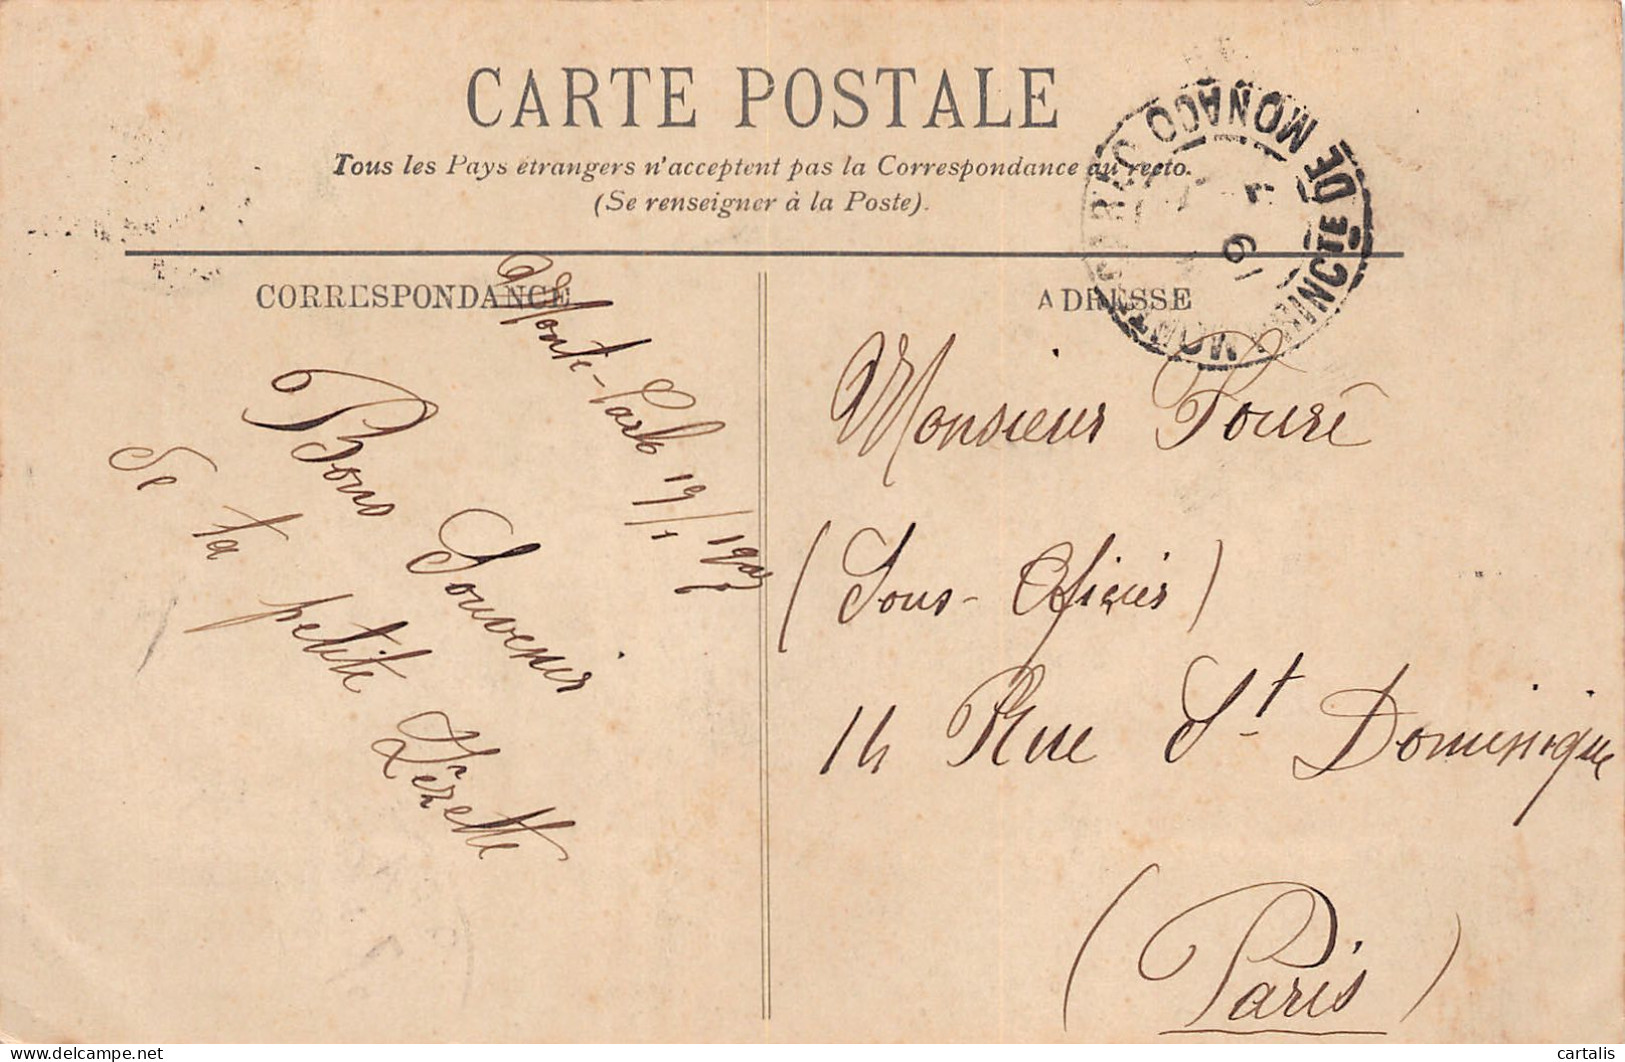 CARTE POSTALE
Tous les Pays étrangers n'acceptent pas la Correspondance au recto.
(Se renseigner à la Poste).
MONTE-CARLO MONACO
PRINCTE DE MONACO
19
CORRESPONDANCE
Monte-Carlo 19/1 1907
Bons Souvenir
de ta petite Zézette
ADRESSE
Monsieur Fouré
(Sous-Oficier)
14 Rue St Dominique
(Paris)
delcampe.net
cartalis